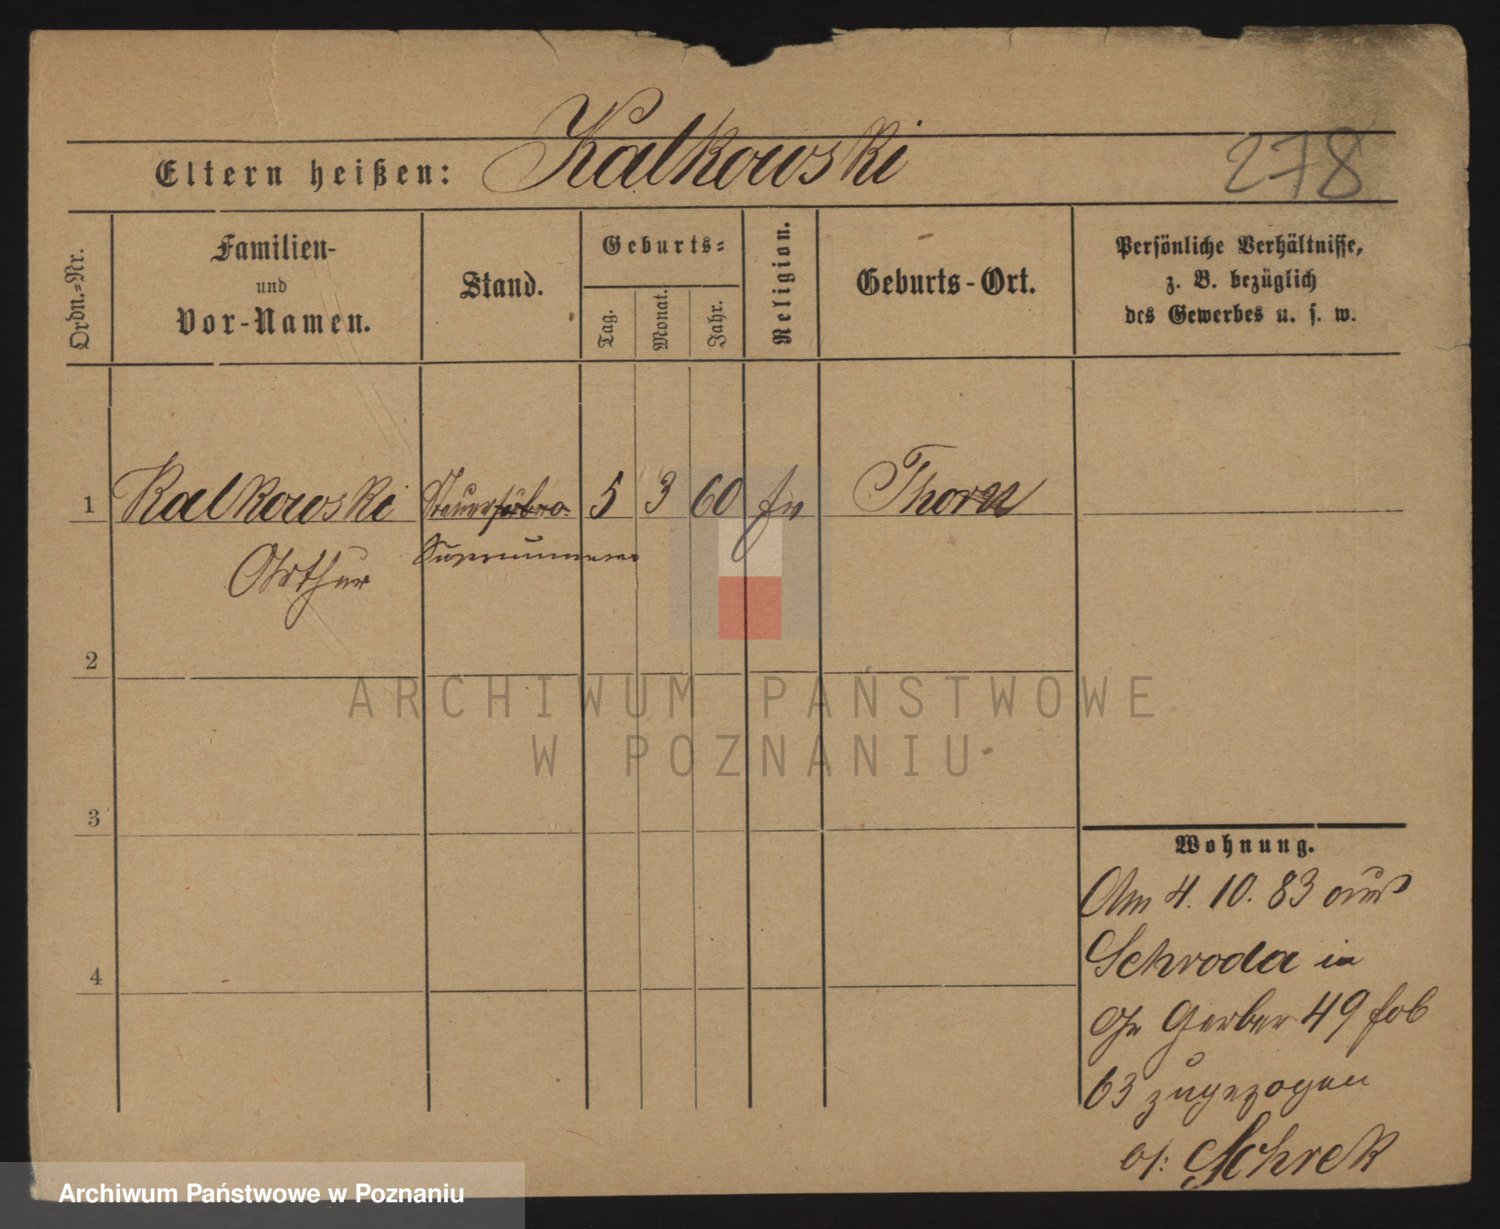 Eltern heißen: Kalkowski
278
Ordn.=Nr.
Familien-
und
Vor-Namen.
Stand.
Geburts=
Tag.
Monat.
Jahr.
Religion.
Geburts-Ort.
Persönliche Verhältnisse,
z. B. bezüglich
des Gewerbes u. s. w.
1 Kalkowski 5 3 60 Thorn
Arthur Supernumerar
2
3
4
ARCHIWUM PAŃSTWOWE
W POZNANIU
Wohnung.
Am 4. 10. 83 aus
Schroda in
Gr Gerber 49
63 zugezogen
Schrek
Archiwum Państwowe w Poznaniu